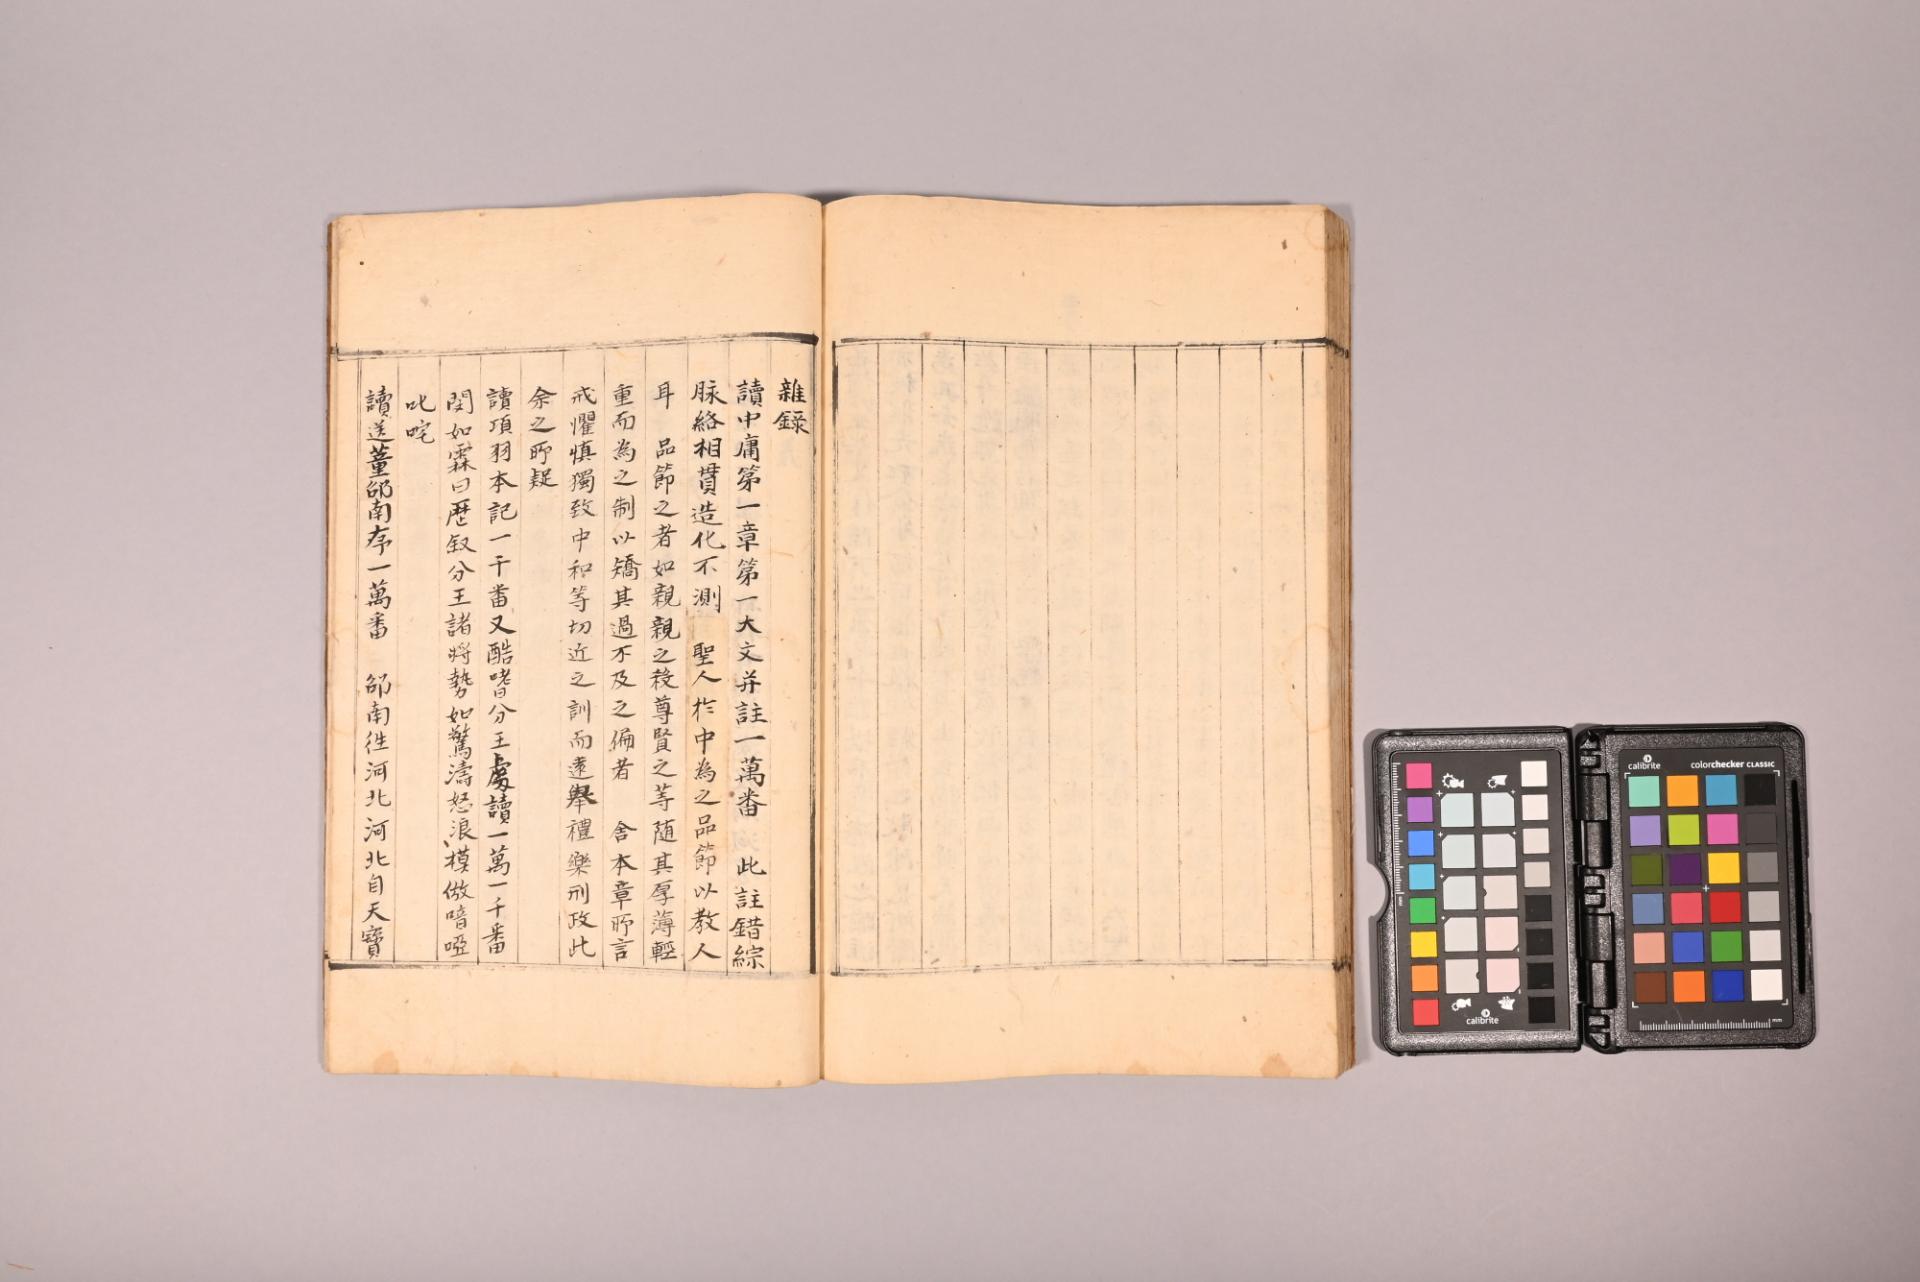 雜錄
讀中庸第一章第一大文并註一萬番 此註錯綜
脉絡相貫造化不測 聖人於中為之品節以教人
耳 品節之者如親親之殺尊賢之等随其厚薄輕
重而為之制以矯其過不及之偏者 舍本章所言
戒懼慎獨致中和等切近之訓而遠舉禮樂刑政此
余之所疑
讀項羽本記一千番又酷嗜分王處讀一萬一千番
閔如霖曰歷叙分王諸將勢如驚濤怒浪模倣喑啞
叱咤
讀送董邵南序一萬番 邵南徃河北河北自天寶
calibrite
calibrite
colorchecker CLASSIC
mm